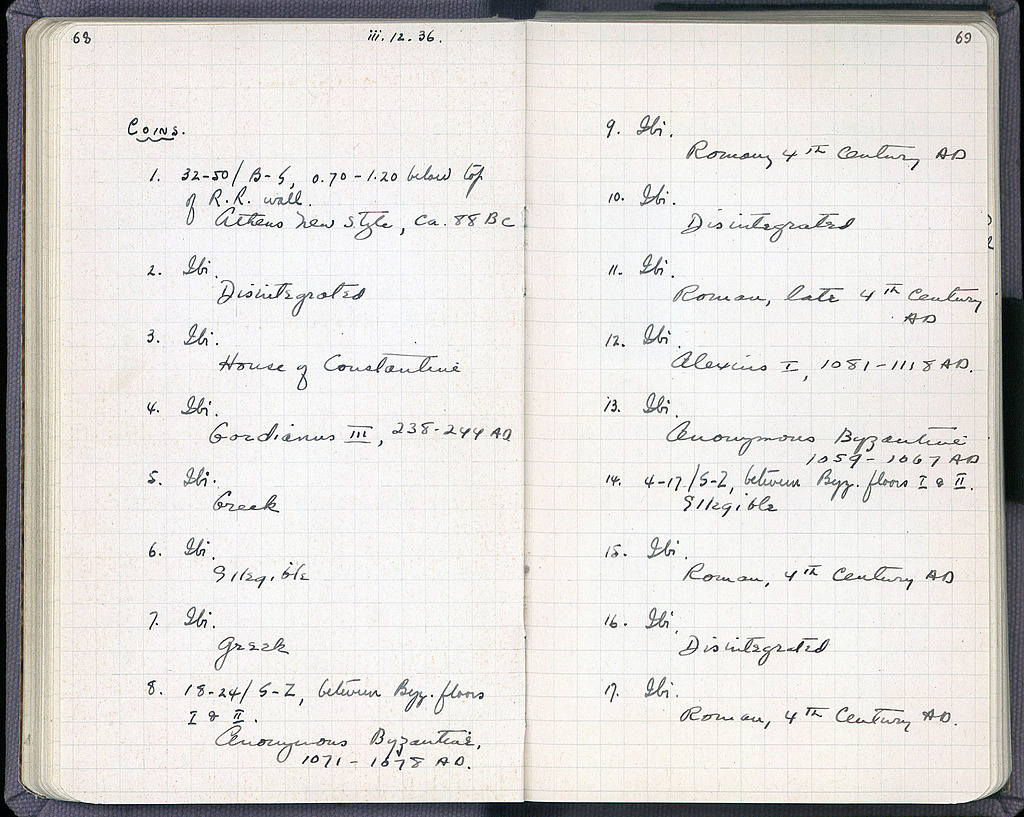 68
iii. 12. 36.
Coins.
1. 32-50/B-S, 0.70-1.20 below top
of R.R. wall.
Athens new style, ca. 88 BC
2. Ibi.
Disintegrated
3. Ibi.
House of Constantine
4. Ibi.
Gordianus III, 238-244 AD
5. Ibi.
Greek
6. Ibi.
Illegible
7. Ibi.
Greek
8. 18-24/S-Z, between Byz. floors
I & II.
Anonymous Byzantine,
1071-1078 AD.
69
9. Ibi.
Roman, 4th Century AD
10. Ibi.
Disintegrated
11. Ibi.
Roman, late 4th Century
AD
12. Ibi.
Alexius I, 1081-1118 AD.
13. Ibi.
Anonymous Byzantine
1059-1067 AD
14. 4-17/S-Z, between Byz. floors I & II.
Illegible
15. Ibi.
Roman, 4th Century AD
16. Ibi.
Disintegrated
17. Ibi.
Roman, 4th Century AD.